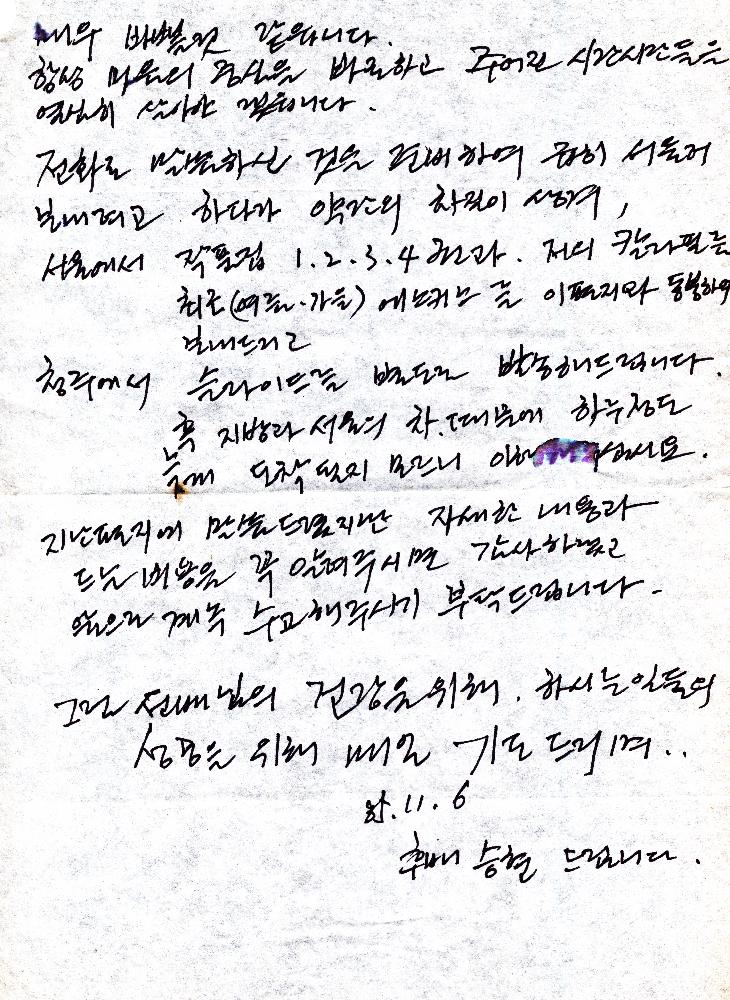 매우 바쁠것 같읍니다.
항상 마음의 중심을 바로하고 주어진 시간시간들을
열심히 살아야 겠읍니다.
전화로 말씀하신 것을 준비하여 급히 서둘러
보내려고 하다가 약간의 차질이 생겨,
서울에서 작품집 1.2.3.4 권과. 저의 칼라필름
최근(여름.가을) 에스키스를 이편지와 동봉하여
보내드리고
청주에서 슬라이드를 별도로 발송해드립니다.
혹 지방과 서울의 차.때문에 하루정도
늦게 도착될지 모르니
지난편지에 말씀드렸지만 자세한 내용과
드는 비용을 꼭 알려주시면 감사하겠고
앞으로 계속 수고해주시기 부탁드립니다.
그럼 선배님의 건강을위해. 하시는일들의
성공을 위해 매일 기도드리며..
11.6
후배 승현 드립니다.